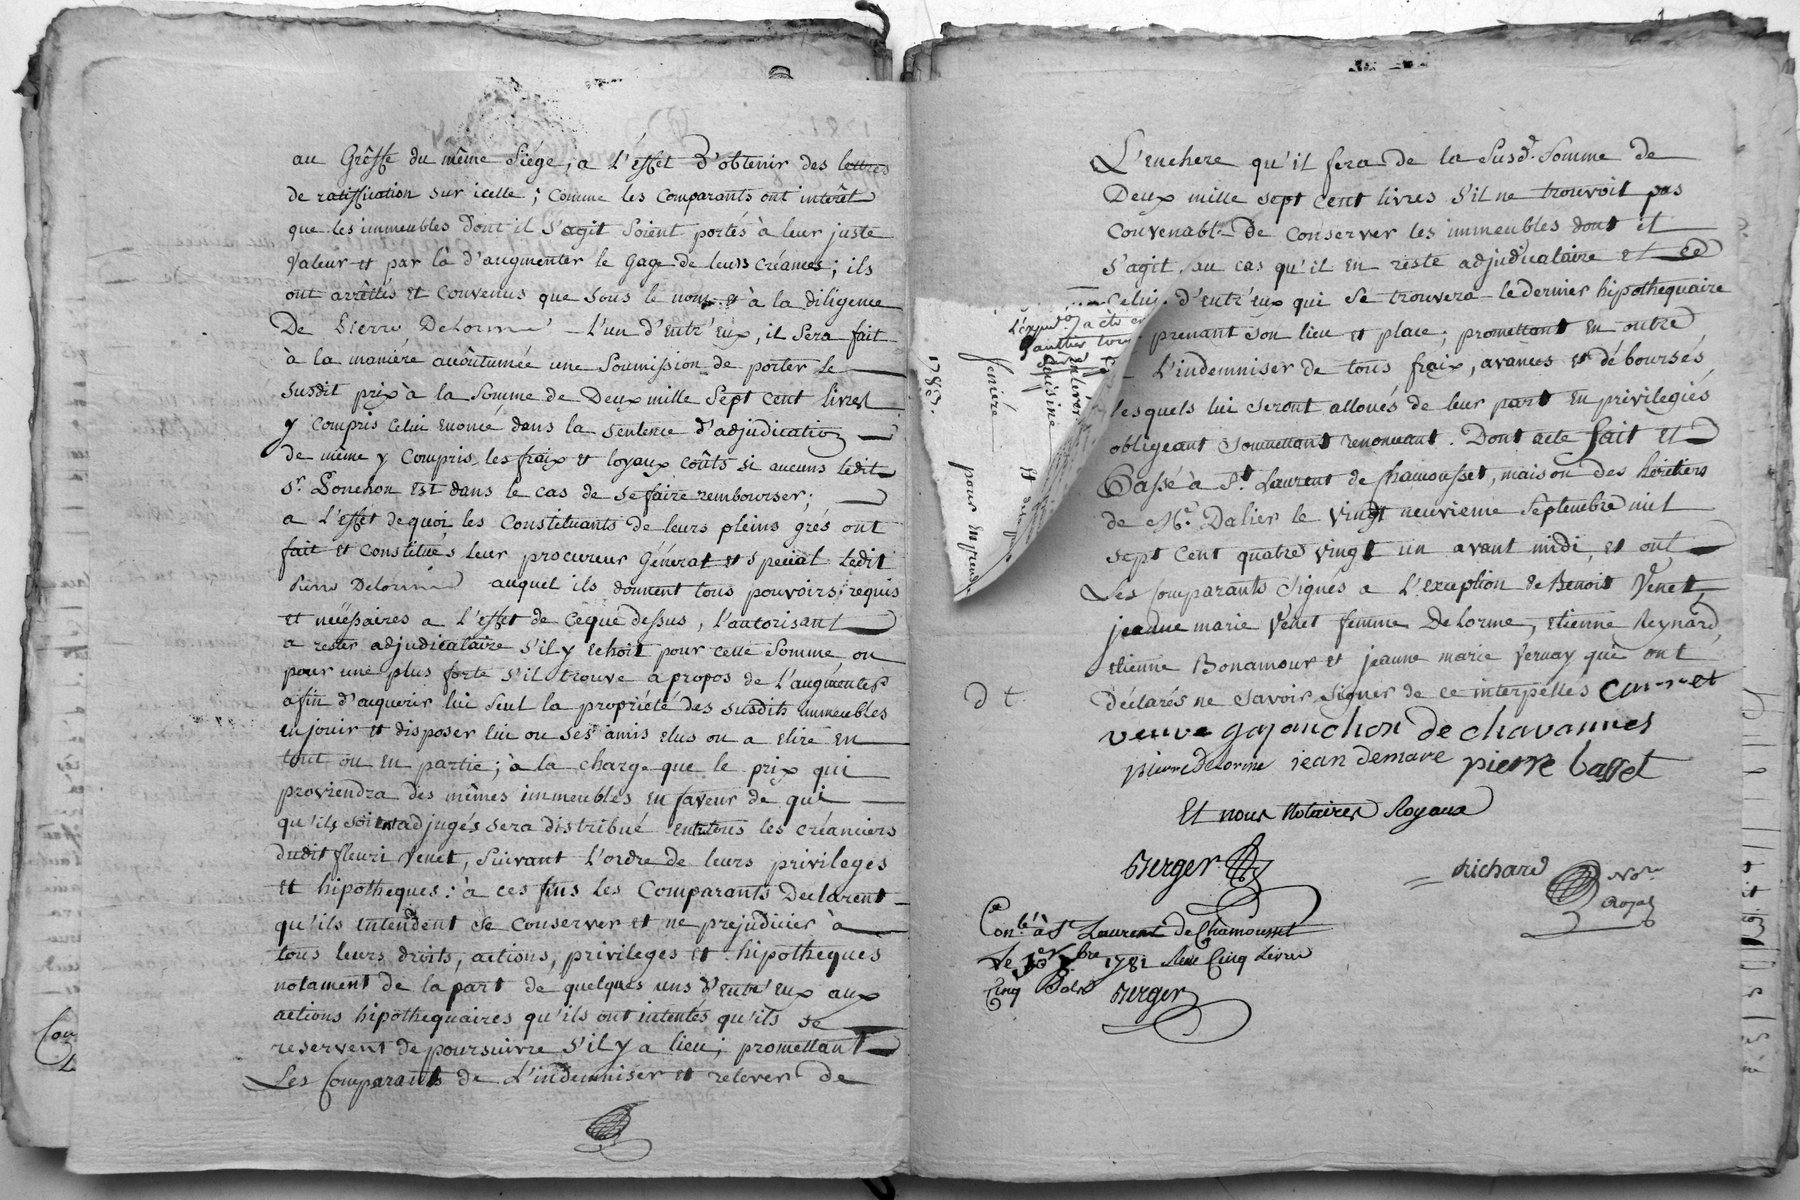 au Grêffe du même Siége, a L'effet d'obtenir des lettres
de ratiffication sur icelle; Comme les Comparants ont intérêt
que les immeubles dont il S'agit Soient portés à leur juste
Valeur et par là d'augmenter le Gage de leurs Créances; ils
ont arrêttés et Convenus que Sous le nom et à la diligence
De Pierre Delorme L'un d'Entr'Eux, il Sera fait
à la maniére accoutumée une Soumission de porter le
Susdit prix à la Somme de Deux mille Sept cent livres
y Compris Celui Enoncé dans la Sentence d'adjudication
de même y Compris les fraix et loyaux coûts si aucuns ledit
Sr. Ponchon Est dans le cas de se faire rembourser;
a L'effet de quoi les Constituants de leurs pleins grés ont
fait et Constitués leur procureur Général et Special ledit
Pierre Delorme auquel ils donnent tous pouvoirs requis
et nécessaires a L'effet de Ceque dessus, L'autorisant
a rester adjudicataire S'il y Echoit pour cette Somme ou
pour une plus forte S'il trouve a propos de L'augmenter
afin d'acquerir lui Seul la propriété des susdits immeubles
en jouir et disposer lui ou Ses amis Elus ou a Elire En
tout ou En partie; à la charge que le prix qui
proviendra des mêmes immeubles En faveur de qui
qu'ils soient adjugés sera distribué Entre tous les créanciers
dudit fleuri Venet, Suivant L'ordre de leurs privileges
et hipotheques: à ces fins les Comparants Declarent
qu'ils Entendent se Conserver et ne préjudicier à
tous leurs droits, actions, privileges et hipotheques
notament de la part de quelques uns d'Entr'Eux aux
actions hipothequaires qu'ils ont intentés qu'ils se
reservent de poursuivre S'il y a lieu; promettant
Les Comparants de L'indemniser et relever de
L'Enchere qu'il fera de la Susd. Somme de
Deux mille Sept Cent livres S'il ne trouvoit pas
Convenable De Conserver les immeubles dont il
S'agit au cas qu'il En reste adjudicataire et ce
Celui d'Entr'Eux qui Se trouvera le dernier hipothequaire
prenant Son lieu et place; promettant En outre
L'indemniser de tous fraix, avances et déboursés
lesquels lui seront alloués de leur part En privilegiés
obligeant Soumettant renonçant. Dont acte fait et
Passé à St. Laurent de Chamousset, maison des héritiers
de Me. Dalier le Vingt neuvieme Septembre mil
Sept Cent quatre Vingt un avant midi, et ont
Les Comparants Signés a L'exception de Benoit Venet,
jeanne marie Venet femme Delorme, Etienne Reynard,
Etienne Bonamour et jeanne marie Vernay qui ont
Déclarés ne Savoir Signer de ce interpellés
veuve gajonchon de chavannes
pierre delorme jean demare pierre basset
Et nous Notaires Royaux
Berger
Richard
Nore
Royal
Conlé à St Laurent de Chamousset
Le
1781 Reçu Cinq Livres
Cinq Sols Berger
1783.
pour